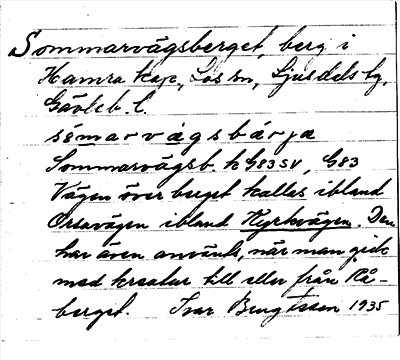 Sommarvägsberget, berg i
Hamra kap., Los sn, Ljusdals tg,
Gävleb. l.
sómarvägsbärja
Sommarvägsb. k G83 SV, G83
Vägen över berget kallas ibland
Orsavägen ibland Kyrkvägen. Den
har även använts, när man gick
med kreatur till eller från Rå-
berget. Ivar Bengtsson 1935